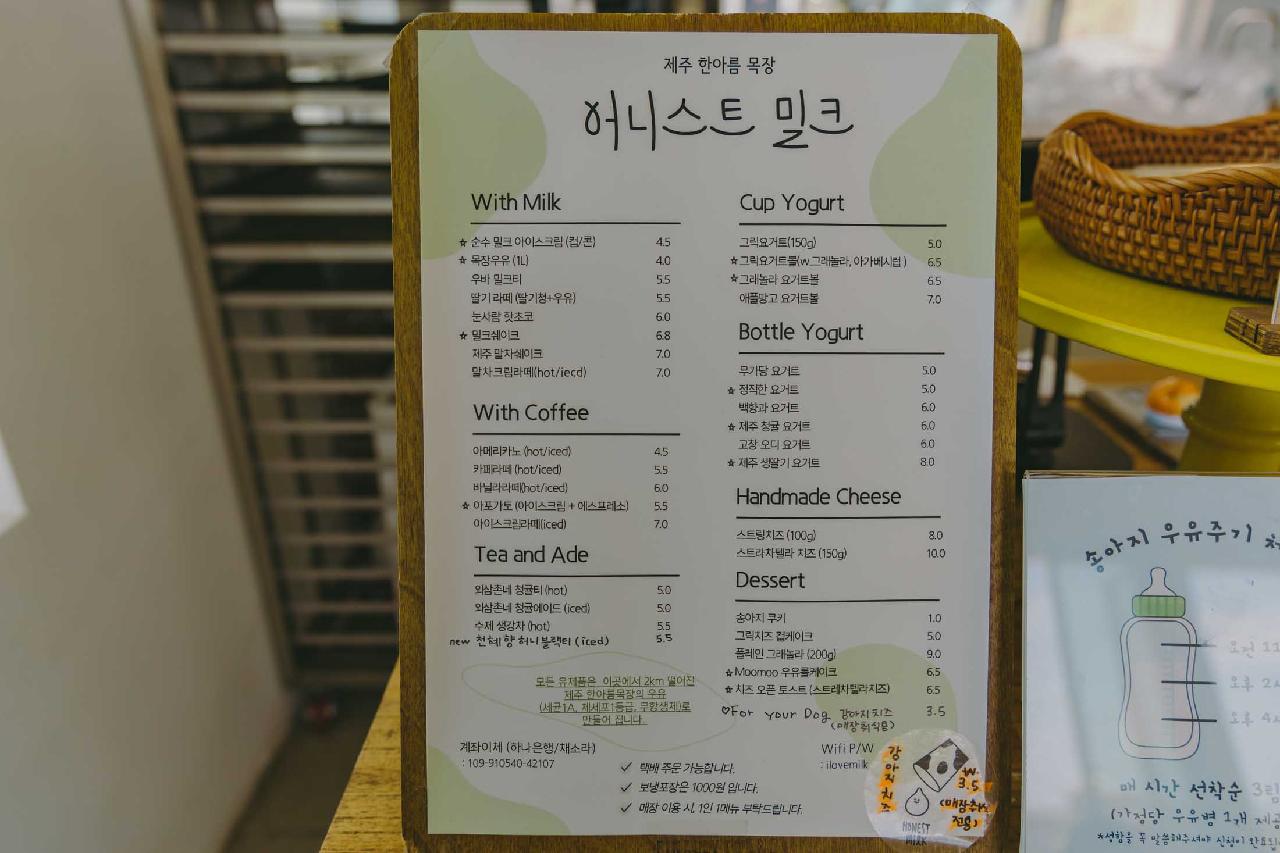 제주 한아름 목장
어니스트 밀크
With Milk
☆ 순수 밀크 아이스크림 (컵/콘) 4.5
☆ 목장우유 (1L) 4.0
우바 밀크티 5.5
딸기 라떼 (딸기청+우유) 5.5
눈사람 핫초코 6.0
☆ 밀크쉐이크 6.8
제주 말차쉐이크 7.0
말차크림라떼(hot/iecd) 7.0
With Coffee
아메리카노 (hot/iced) 4.5
카페라떼 (hot/iced) 5.5
바닐라라떼(hot/iced) 6.0
☆ 아포가토 (아이스크림 + 에스프레소) 5.5
아이스크림라떼(iced) 7.0
Tea and Ade
외삼촌네 청귤티 (hot) 5.0
외삼촌네 청귤에이드 (iced) 5.0
수제 생강차 (hot) 5.5
new 천혜향 허니블랙티 (iced) 5.5
모든 유제품은 이곳에서 2km 떨어진
제주 한아름목장의 우유
(세균1A, 체세포1등급, 무항생제)로
만들어 집니다.
Cup Yogurt
그릭요거트(150g) 5.0
☆그릭요거트볼(w.그래놀라, 아가베시럽 ) 6.5
☆그래놀라 요거트볼 6.5
애플망고 요거트볼 7.0
Bottle Yogurt
무가당 요거트 5.0
☆ 정직한 요거트 5.0
백향과 요거트 6.0
☆ 제주 청귤 요거트 6.0
고창 오디 요거트 6.0
☆ 제주 생딸기 요거트 8.0
Handmade Cheese
스트링치즈 (100g) 8.0
스트라차텔라 치즈 (150g) 10.0
Dessert
송아지 쿠키 1.0
그릭치즈 컵케이크 5.0
플레인 그래놀라 (200g) 9.0
☆Moomoo 우유롤케이크 6.5
☆ 치즈 오픈 토스트 (스트레차텔라치즈) 6.5
♡For your Dog 강아지 치즈 3.5
(매장취식용)
계좌이체 (하나은행/채소라)
: 109-910540-42107
Wifi P/W
: ilovemilk
✓ 택배 주문 가능합니다.
✓ 보냉포장은 1000원 입니다.
✓ 매장 이용 시, 1인 1메뉴 부탁드립니다.
강아지 치즈
₩
3.5
(매장취식
전용)
HONEST
MILK
송아지 우유주기
오전 11
오후 2
오후 4
매 시간 선착순 3팀
(가정당 우유병 1개 제공
*성함을 꼭 말씀해주셔야 신청이 완료됩